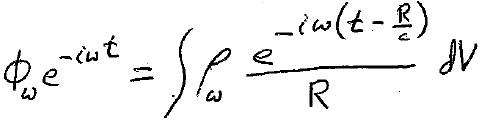 $\phi_\omega e^{-i\omega t} = \int \rho_\omega \frac{e^{-i\omega(t - \frac{R}{c})}}{R} dV$